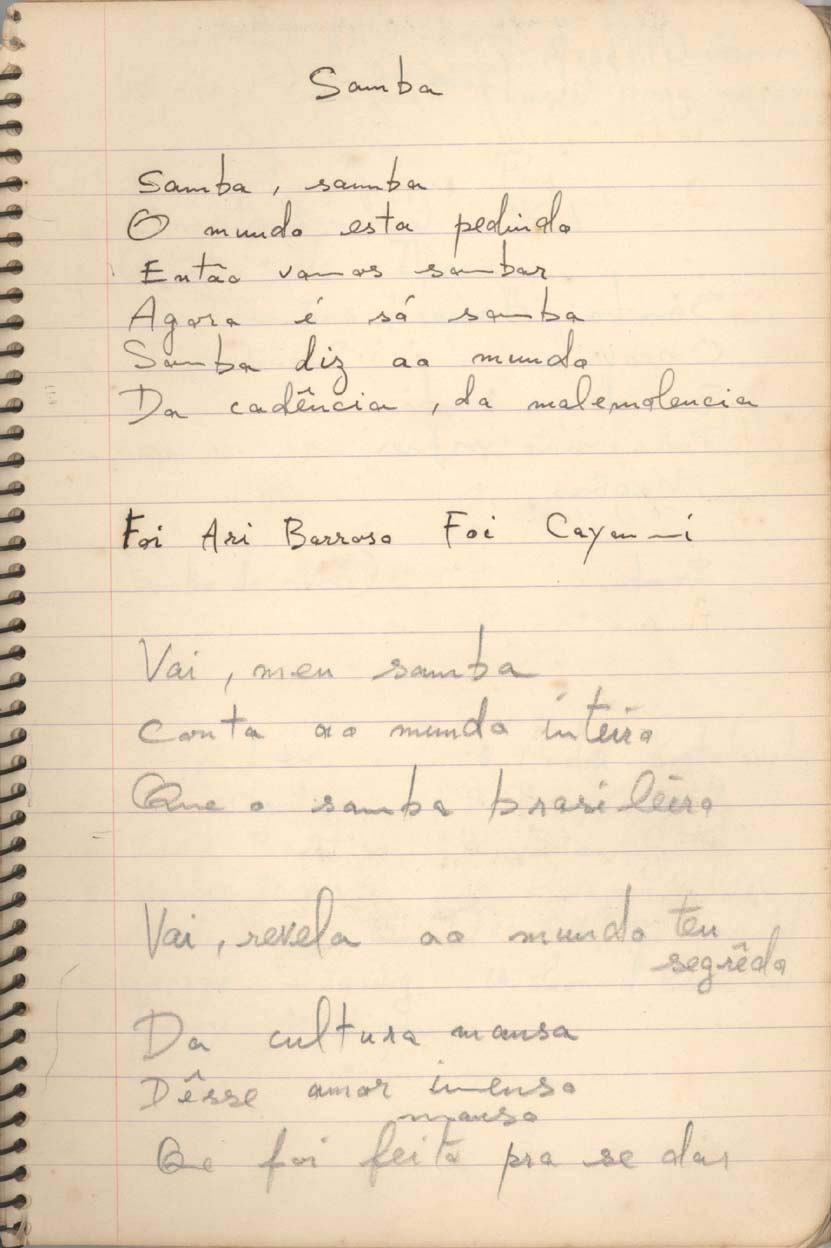 Samba
Samba, samba
O mundo esta pedindo
Então vamos sambar
Agora é só samba
Samba diz ao mundo
Da cadência, da malemolencia
Foi Ari Barroso Foi Caymmi
Vai, meu samba
Conta ao mundo inteiro
Que o samba brasileiro
Vai, revela ao mundo teu
segrêdo
Da cultura mansa
Dêsse amor imenso
manso
Qe foi feito pra se dar